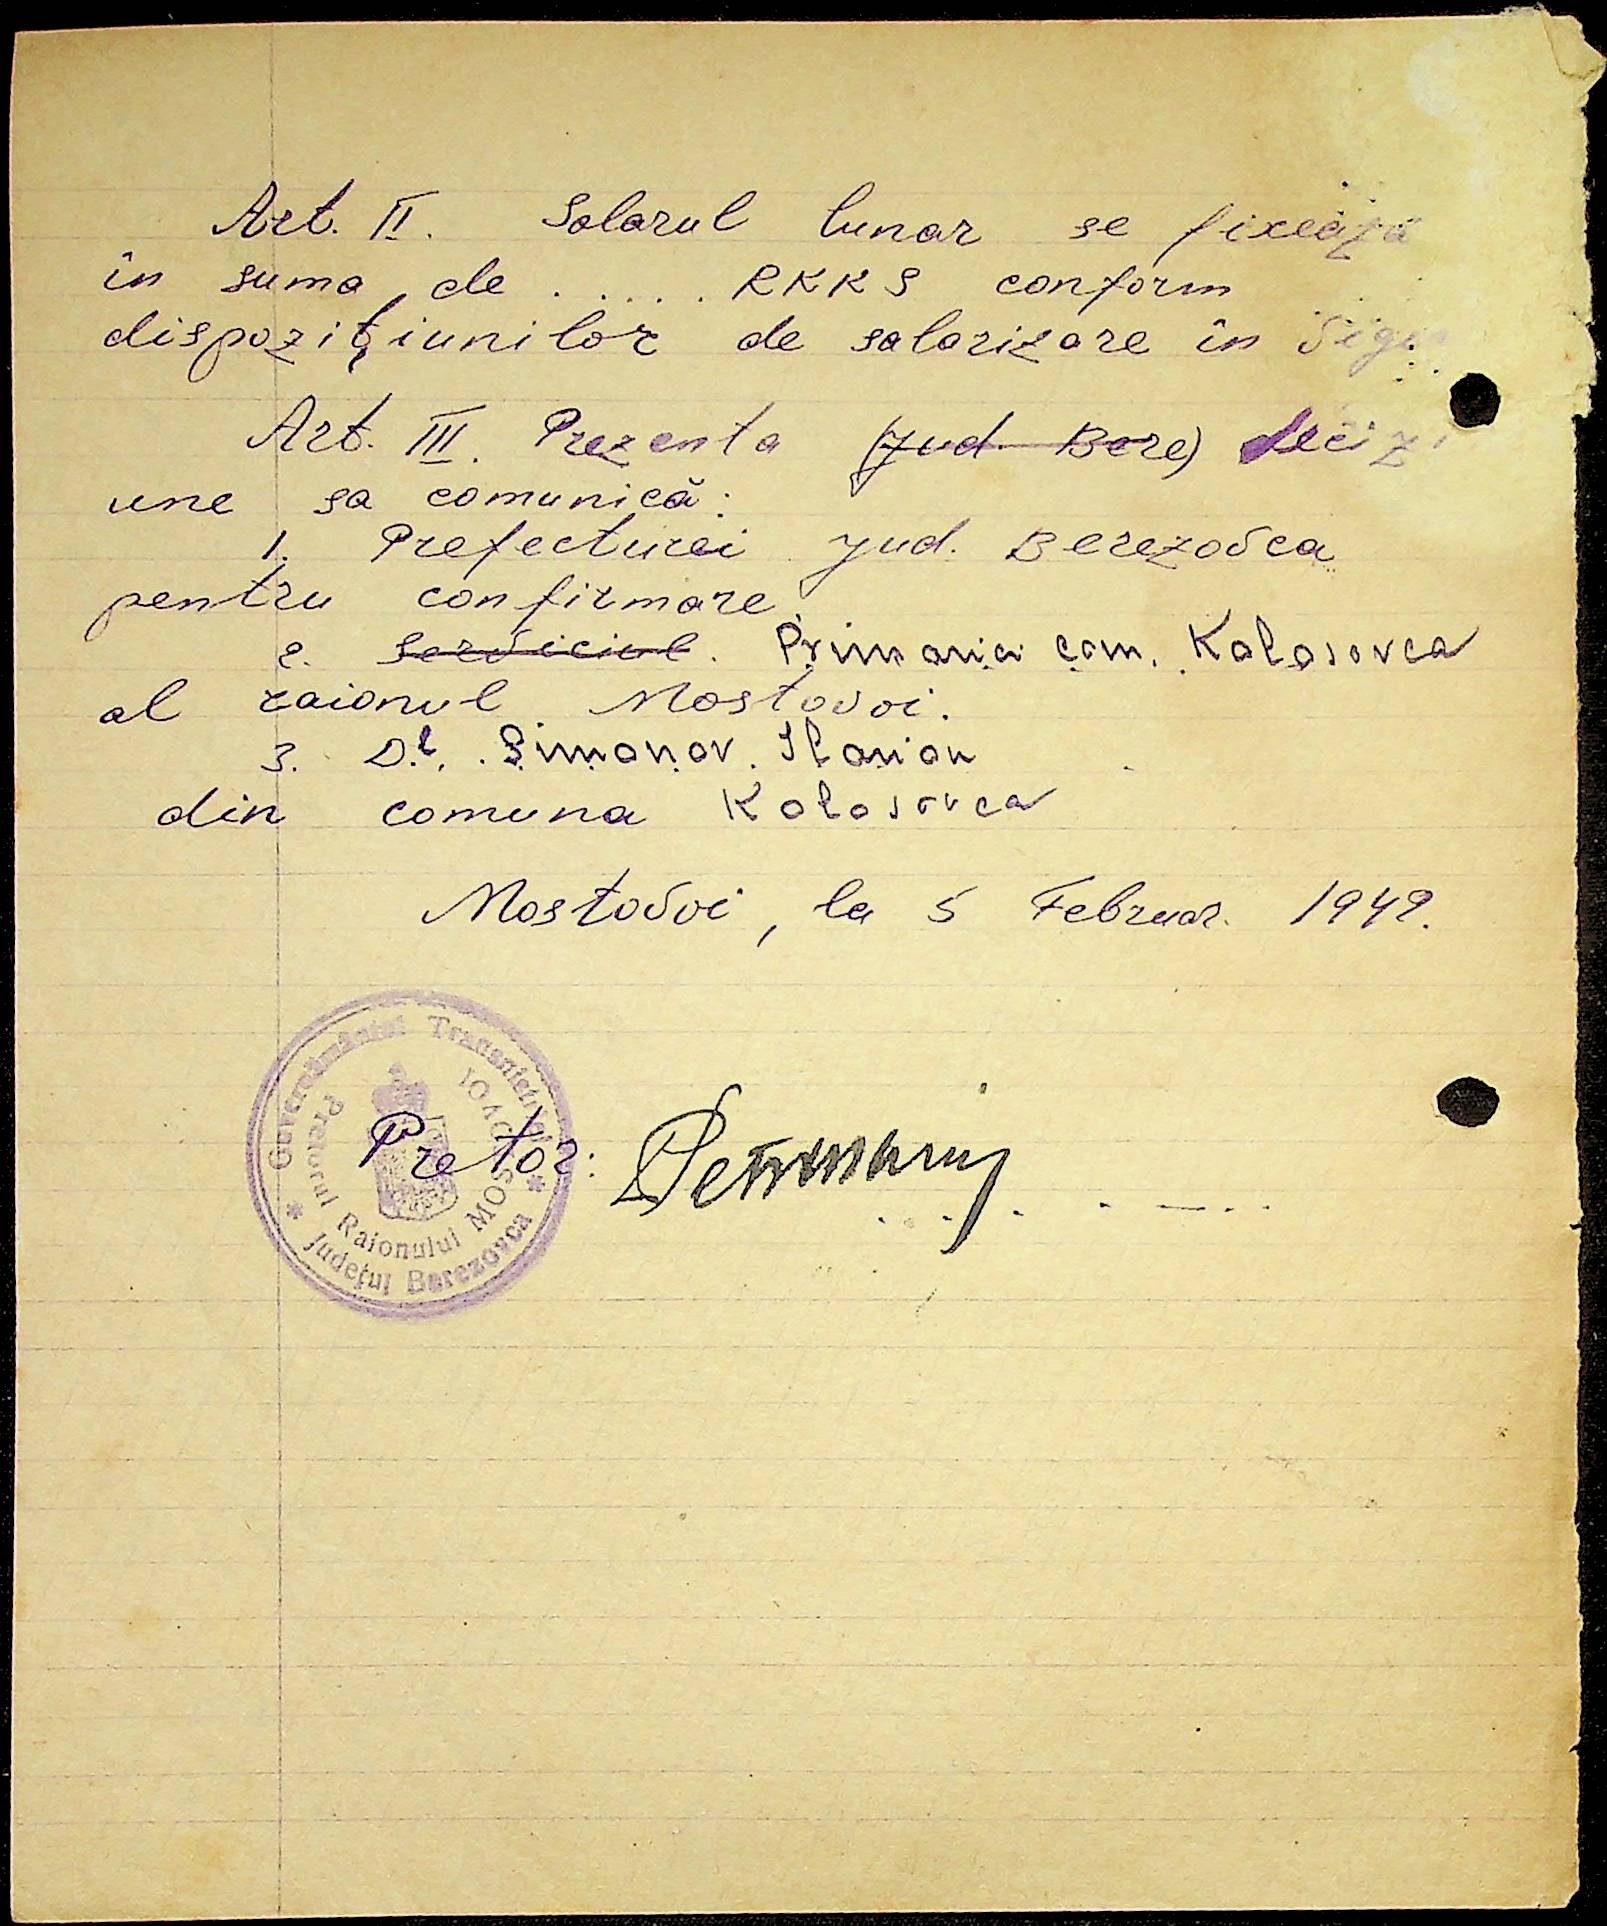 Art. II. Salarul lunar se fixează
în suma de ..... RKKS conform
dispozițiunilor de salarizare în vigo
Art. III. Prezenta (Jud. Bere) decizi
une sa comunică:
1. Prefecturei Jud. Berezovca
pentru confirmare
2. serviciul. Primaria com. Kolosovca
al raionul Mostovoi.
3. Dl. Simonov. Ilarion
din comuna Kolosovca
Mostovoi, la 5 Februar. 1942.
Pretor:
Guvernământul Transnistriei
Pretorul Raionului MOSTOVOI
* Județul Berezovca *